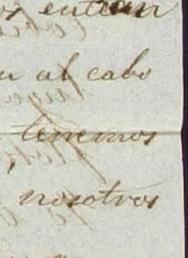 entran
al cabo
tenemos
nosotros